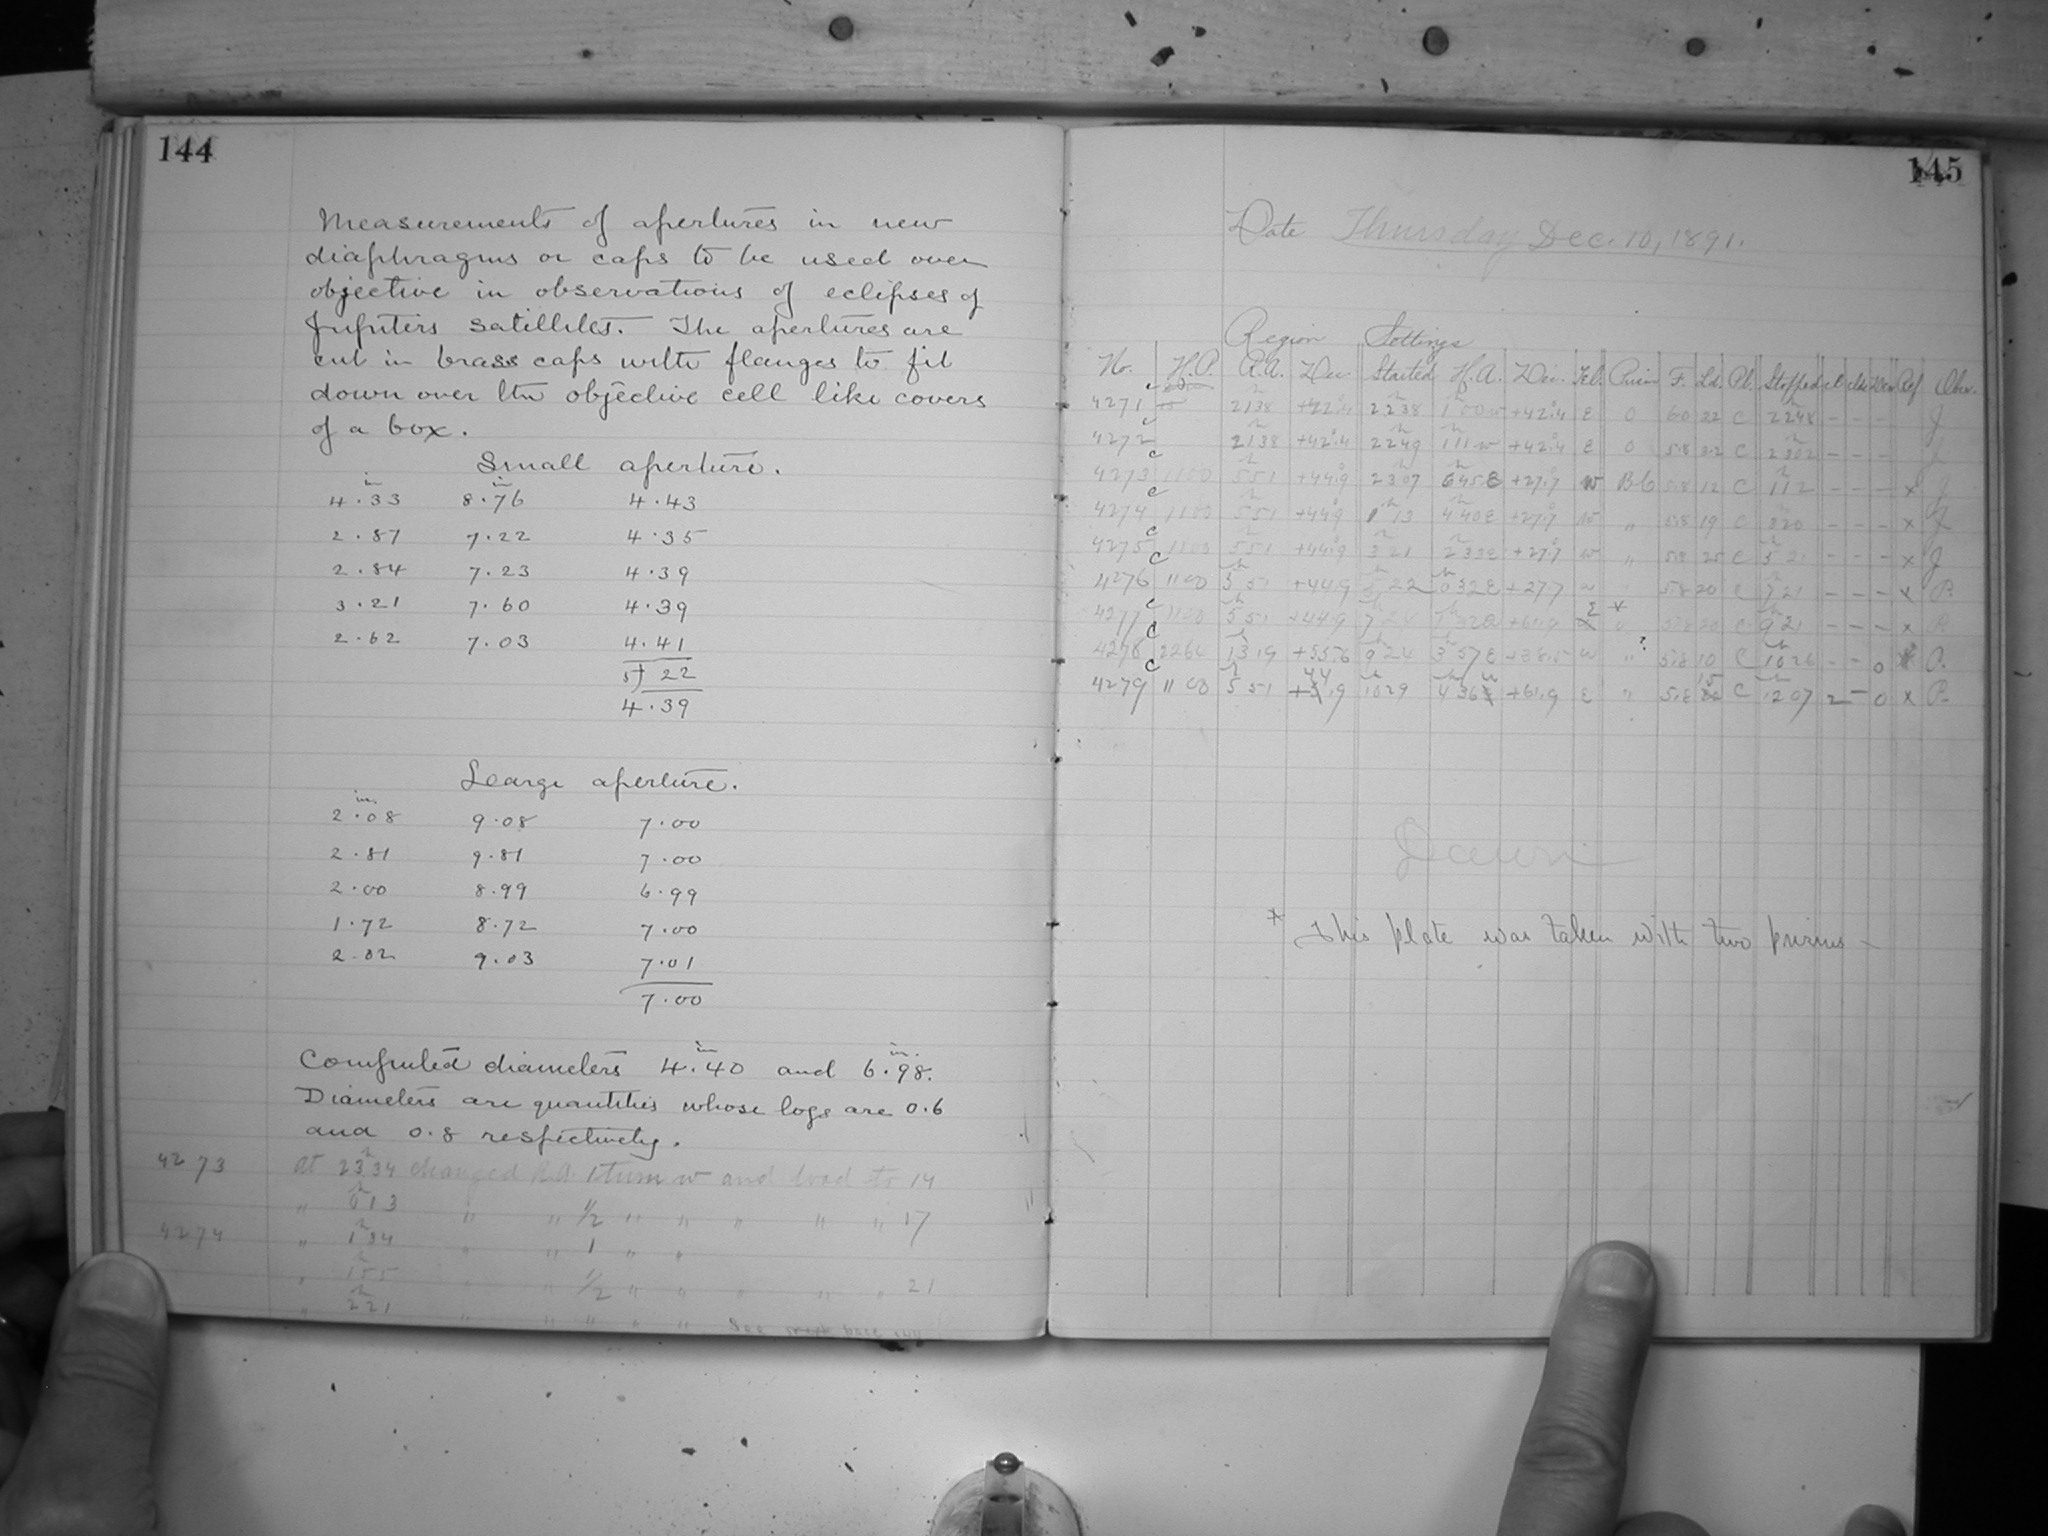 144
Measurements of apertures in new
diaphragms or caps to be used over
objective in observations of eclipses of
Jupiter's satellites. The apertures are
cut in brass caps with flanges to fit
down over the objective cell like covers
of a box.
Small aperture.
in in
4.33 8.76 4.43
2.87 7.22 4.35
2.84 7.23 4.39
3.21 7.60 4.39
2.62 7.03 4.41
5) 22
4.39
Large aperture.
in.
2.08 9.08 7.00
2.81 9.81 7.00
2.00 8.99 6.99
1.72 8.72 7.00
2.02 9.03 7.01
7.00
in in.
Computed diameters 4.40 and 6.98.
Diameters are quantities whose logs are 0.6
and 0.8 respectively.
4273 at 23h34 changed R.A. 1 turn w and load to 14
" 0h13 " " 1/2 " " " " " 17
4274 " 1h34 " " 1 " "
" 1h55 " " 1/2 " " " " " 21
" 2h21 " " " " " See
145
Date Thursday Dec. 10, 1891.
Region Settings
No. H.P. R.A. Dec Started H.A. Dec. Tel. Prism F. Ld. Pl. Stopped Ref Obsr.
4271 c 21h38 +42°.4 22h38 1h00w +42°.4 E 0 60 22 C 22h48 - - - J
4272 c 21h38 +42°.4 22h49 1h11w +42°.4 E 0 58 22 C 23h02 - - - J
4273 c 1100 5h51 +44°.9 23h07 6h45E +27°.7 W B6 58 12 C 1h12 - - - x J
4274 c 1100 5h51 +44°.9 1h13 4h40E +27°.7 W " 58 19 C 3h20 - - - x J
4275 c 1100 5h51 +44°.9 3h21 2h33E +27°.7 W " 58 25 C 5h21 - - - x J
4276 c 1100 5h51 +44.9 5h22 0h32E +27.7 W " 58 20 C 7h21 - - - x P.
4277 c 1100 5h51 +44.9 7h24 +61.9 E * 58 20 C 9h21 - - - x P.
4278 c 2264 13h19 +55.6 9h24 3h57E +38.5 W " ? 58 10 C 10h26 - - 0 P.
4279 c 1100 5h51 +44.9 10h29 4h36w +61.9 E " 58 15 C 12h07 2 - 0 x P.
Dawn
* This plate was taken with two prisms -